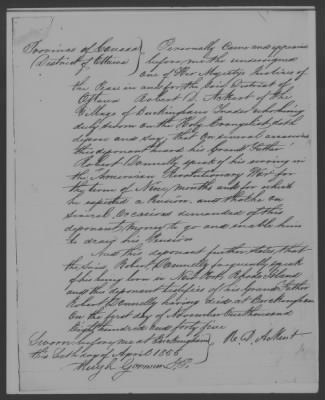 Province of Canada
District of Ottawa
Personally Came and appeared
before me the undersigned
one of Her Majestys Justices of
the Peace in and for the Said District of
Ottawa Robert D. Ackert of the
Village of Buckingham Trader who being
duly Sworn on the Holy Evangelist doth
depose and Say, that On Several occasions
this deponent heard his Grand Father
Robert Donnelly speak of his serving in
the American Revolutionary War for
the term of Nine Months and for which
he expected a Pension, and that he on
Several Occasions demanded of this
deponent, to go and enable him
to draw his Pension
And this deponent further States, that
the Said, Robert Donnelly frequently speak
of his being born in New Port, Rhode Island
and this deponent testifies of his Grand Father
Robert Donnelly having died at Buckingham
On the first day of November One thousand
Eight hundred and forty five
Sworn before me at Buckingham
this day of April 1856
R. D. Ackert
Hugh Gorman J.P.